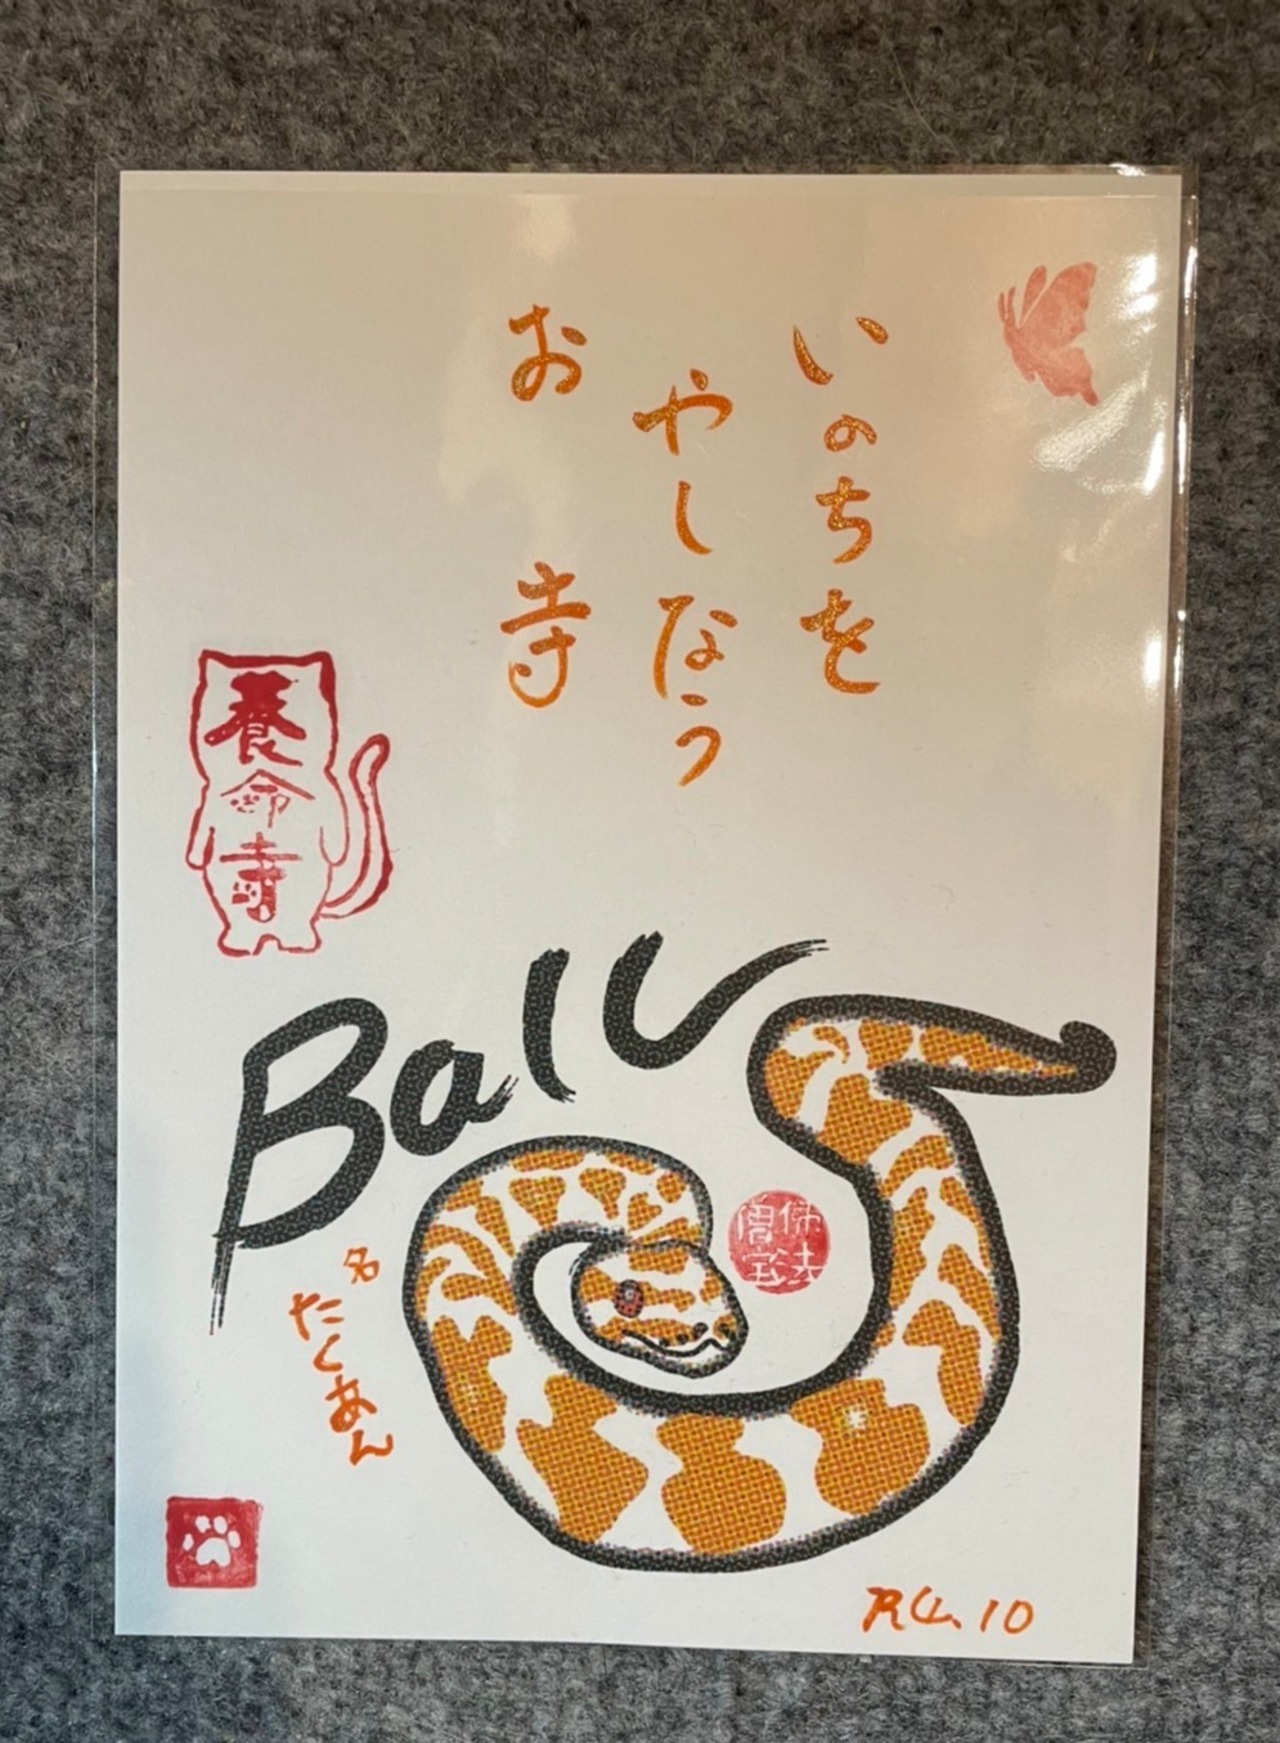 いのちを
やしなう
お寺
養命寺
Ball
名
たくあん
佛法
僧宝
R4.10